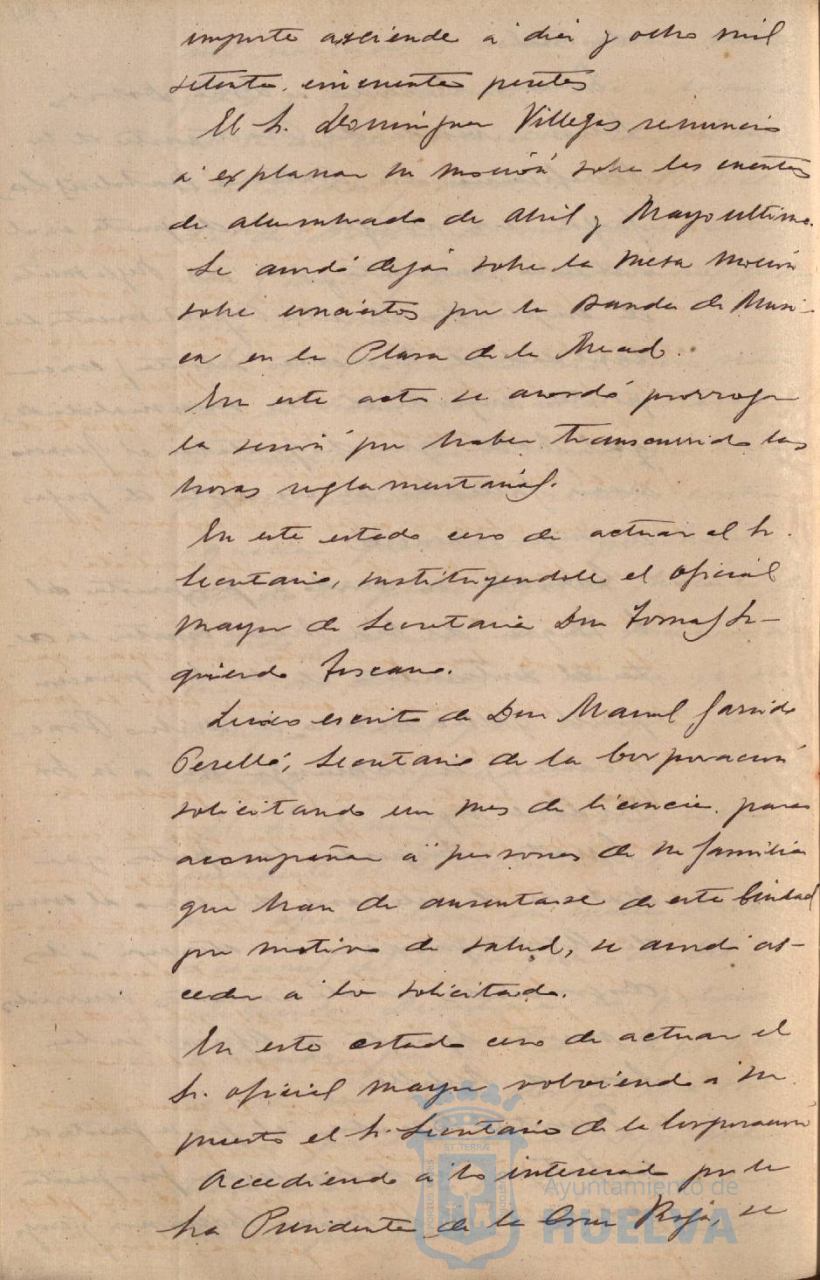 importe asciende a diez y ocho mil
setenta cincuenta pesetas
El Sr. Dominguez Villegas renuncia
a explanar su moción sobre las cuentas
de alumbrado de Abril y Mayo ultimo.
Se acordó dejar sobre la mesa moción
sobre conciertos por la Banda de Musi-
ca en la Plaza de la Merced.
En este acto se acordó prorrogar
la sesión por haber transcurrido las
horas reglamentarias.
En este estado ceso de actuar el Sr.
Secretario, sustituyendole el oficial
mayor de Secretaria Don Tomas Iz-
quierdo
Leido escrito de Don Manuel Garrido
Perelló, Secretario de la Corporación
solicitando un mes de licencia para
acompañar a personas de su familia
que han de ausentarse de esta Ciudad
por motivo de salud, se acordó ac-
ceder a lo solicitado.
En este estado ceso de actuar el
Sr. oficial mayor volviendo a su
puesto el Sr. Secretario de la Corporación
Accediendo a lo interesado por la
Sra Presidenta de la Cruz Roja, se
Ayuntamiento de
HUELVA